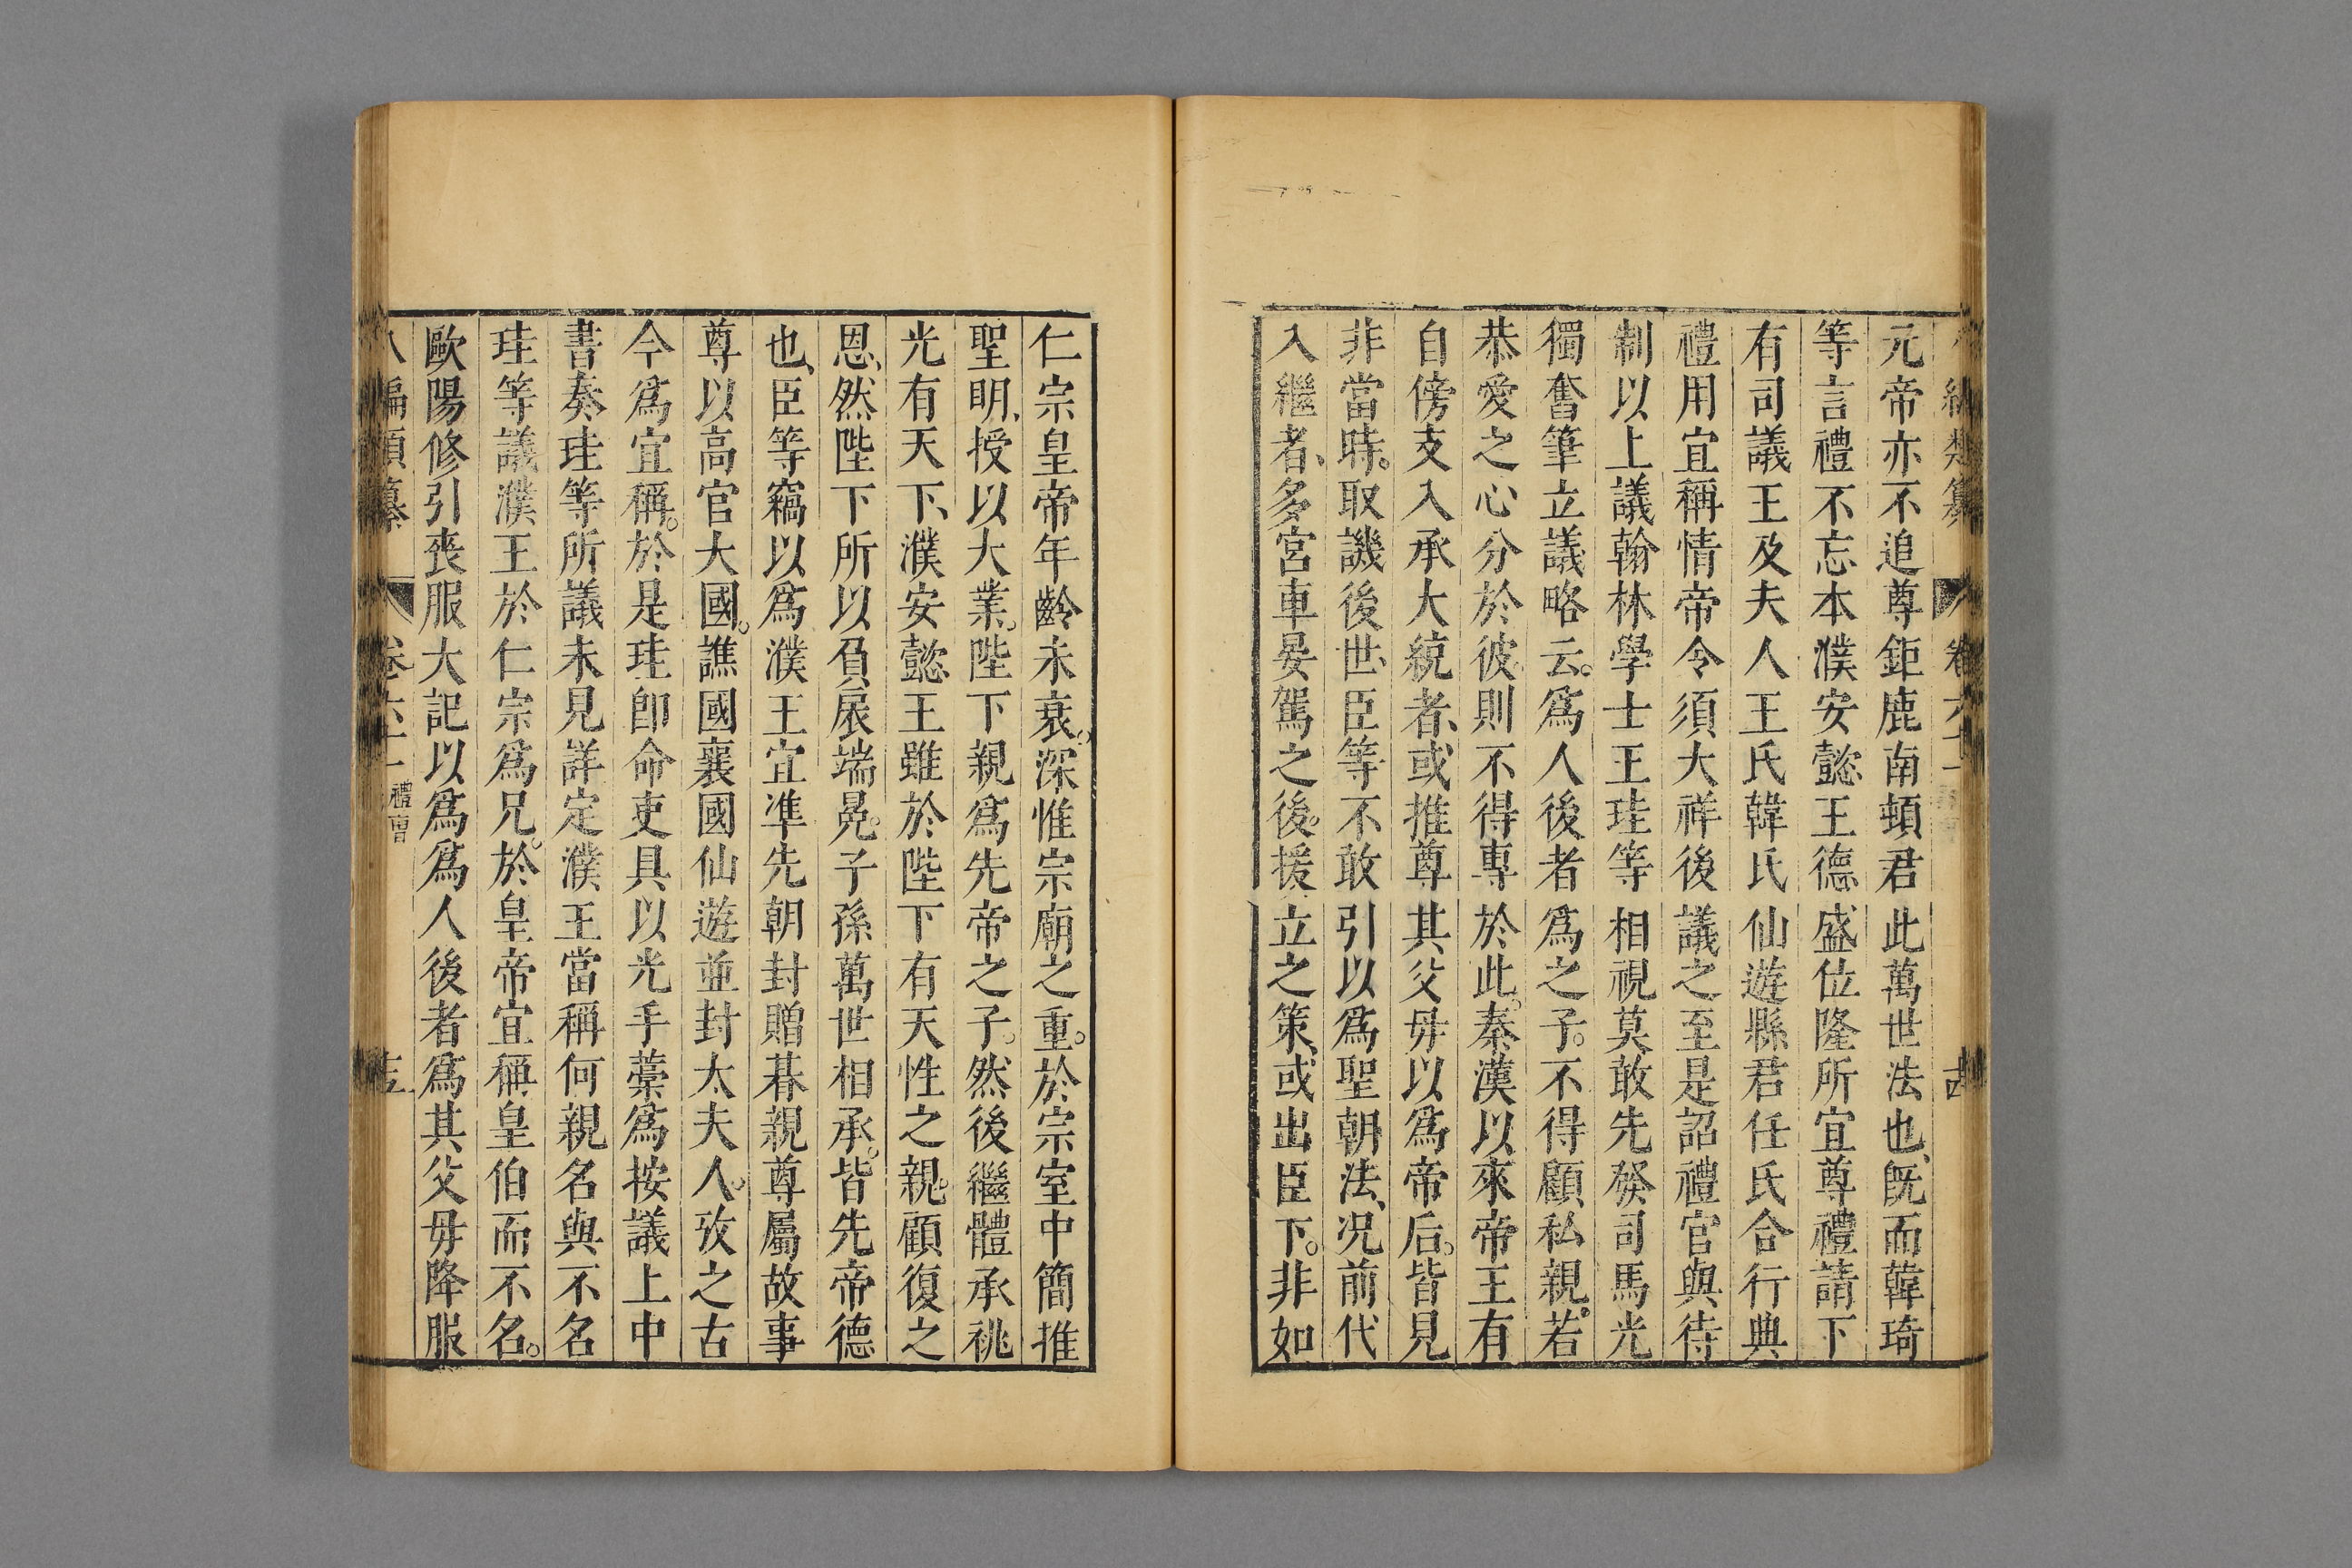 元帝亦不追尊鉅鹿南頓君此萬世法也、旣而韓琦
等言禮不忘本濮安懿王德盛位隆所宜尊禮請下
有司議王及夫人王氏韓氏仙遊縣君任氏合行典
禮用宜稱情帝令須大祥後議之至是詔禮官與待
制以上議翰林學士王珪等相視莫敢先發司馬光
獨奮筆立議略云。爲人後者爲之子。不得顧私親。若
恭愛之心分於彼、則不得專於此。秦漢以來帝王有
自傍支入承大統者、或推尊其父毋以爲帝后。皆見
非當時。取譏後世、臣等不敢引以爲聖朝法、况前代
入繼者、多宮車晏駕之後。援立之策、或出臣下。非如
仁宗皇帝年齡未衰。深惟宗廟之重。於宗室中簡推
聖明、授以大業。陛下親爲先帝之子。然後繼體承祧
光有天下、濮安懿王雖於陛下有天性之親。顧復之
恩、然陛下所以負扆端冕。子孫萬世相承。皆先帝德
也、臣等竊以爲濮王宜凖先朝封贈朞親尊屬故事
尊以高官大國。譙國襄國仙遊並封太夫人。攷之古
今爲宜稱。於是珪卽命吏具以光手藁爲按議上中
書奏珪等所議未見詳定濮王當稱何親名與不名
珪等議濮王於仁宗爲兄。於皇帝宜稱皇伯而不名。
歐陽修引喪服大記以爲爲人後者爲其父毋降服
八編類纂 卷六十一 禮曹